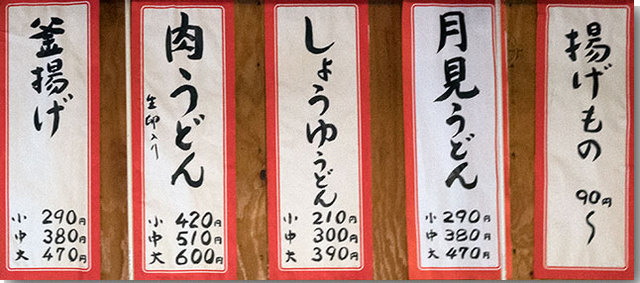 釜揚げ
小 290円
中 380円
大 470円
肉うどん
生卵入り
小 420円
中 510円
大 600円
しょうゆうどん
小 210円
中 300円
大 390円
月見うどん
小 290円
中 380円
大 470円
揚げもの
90円〜